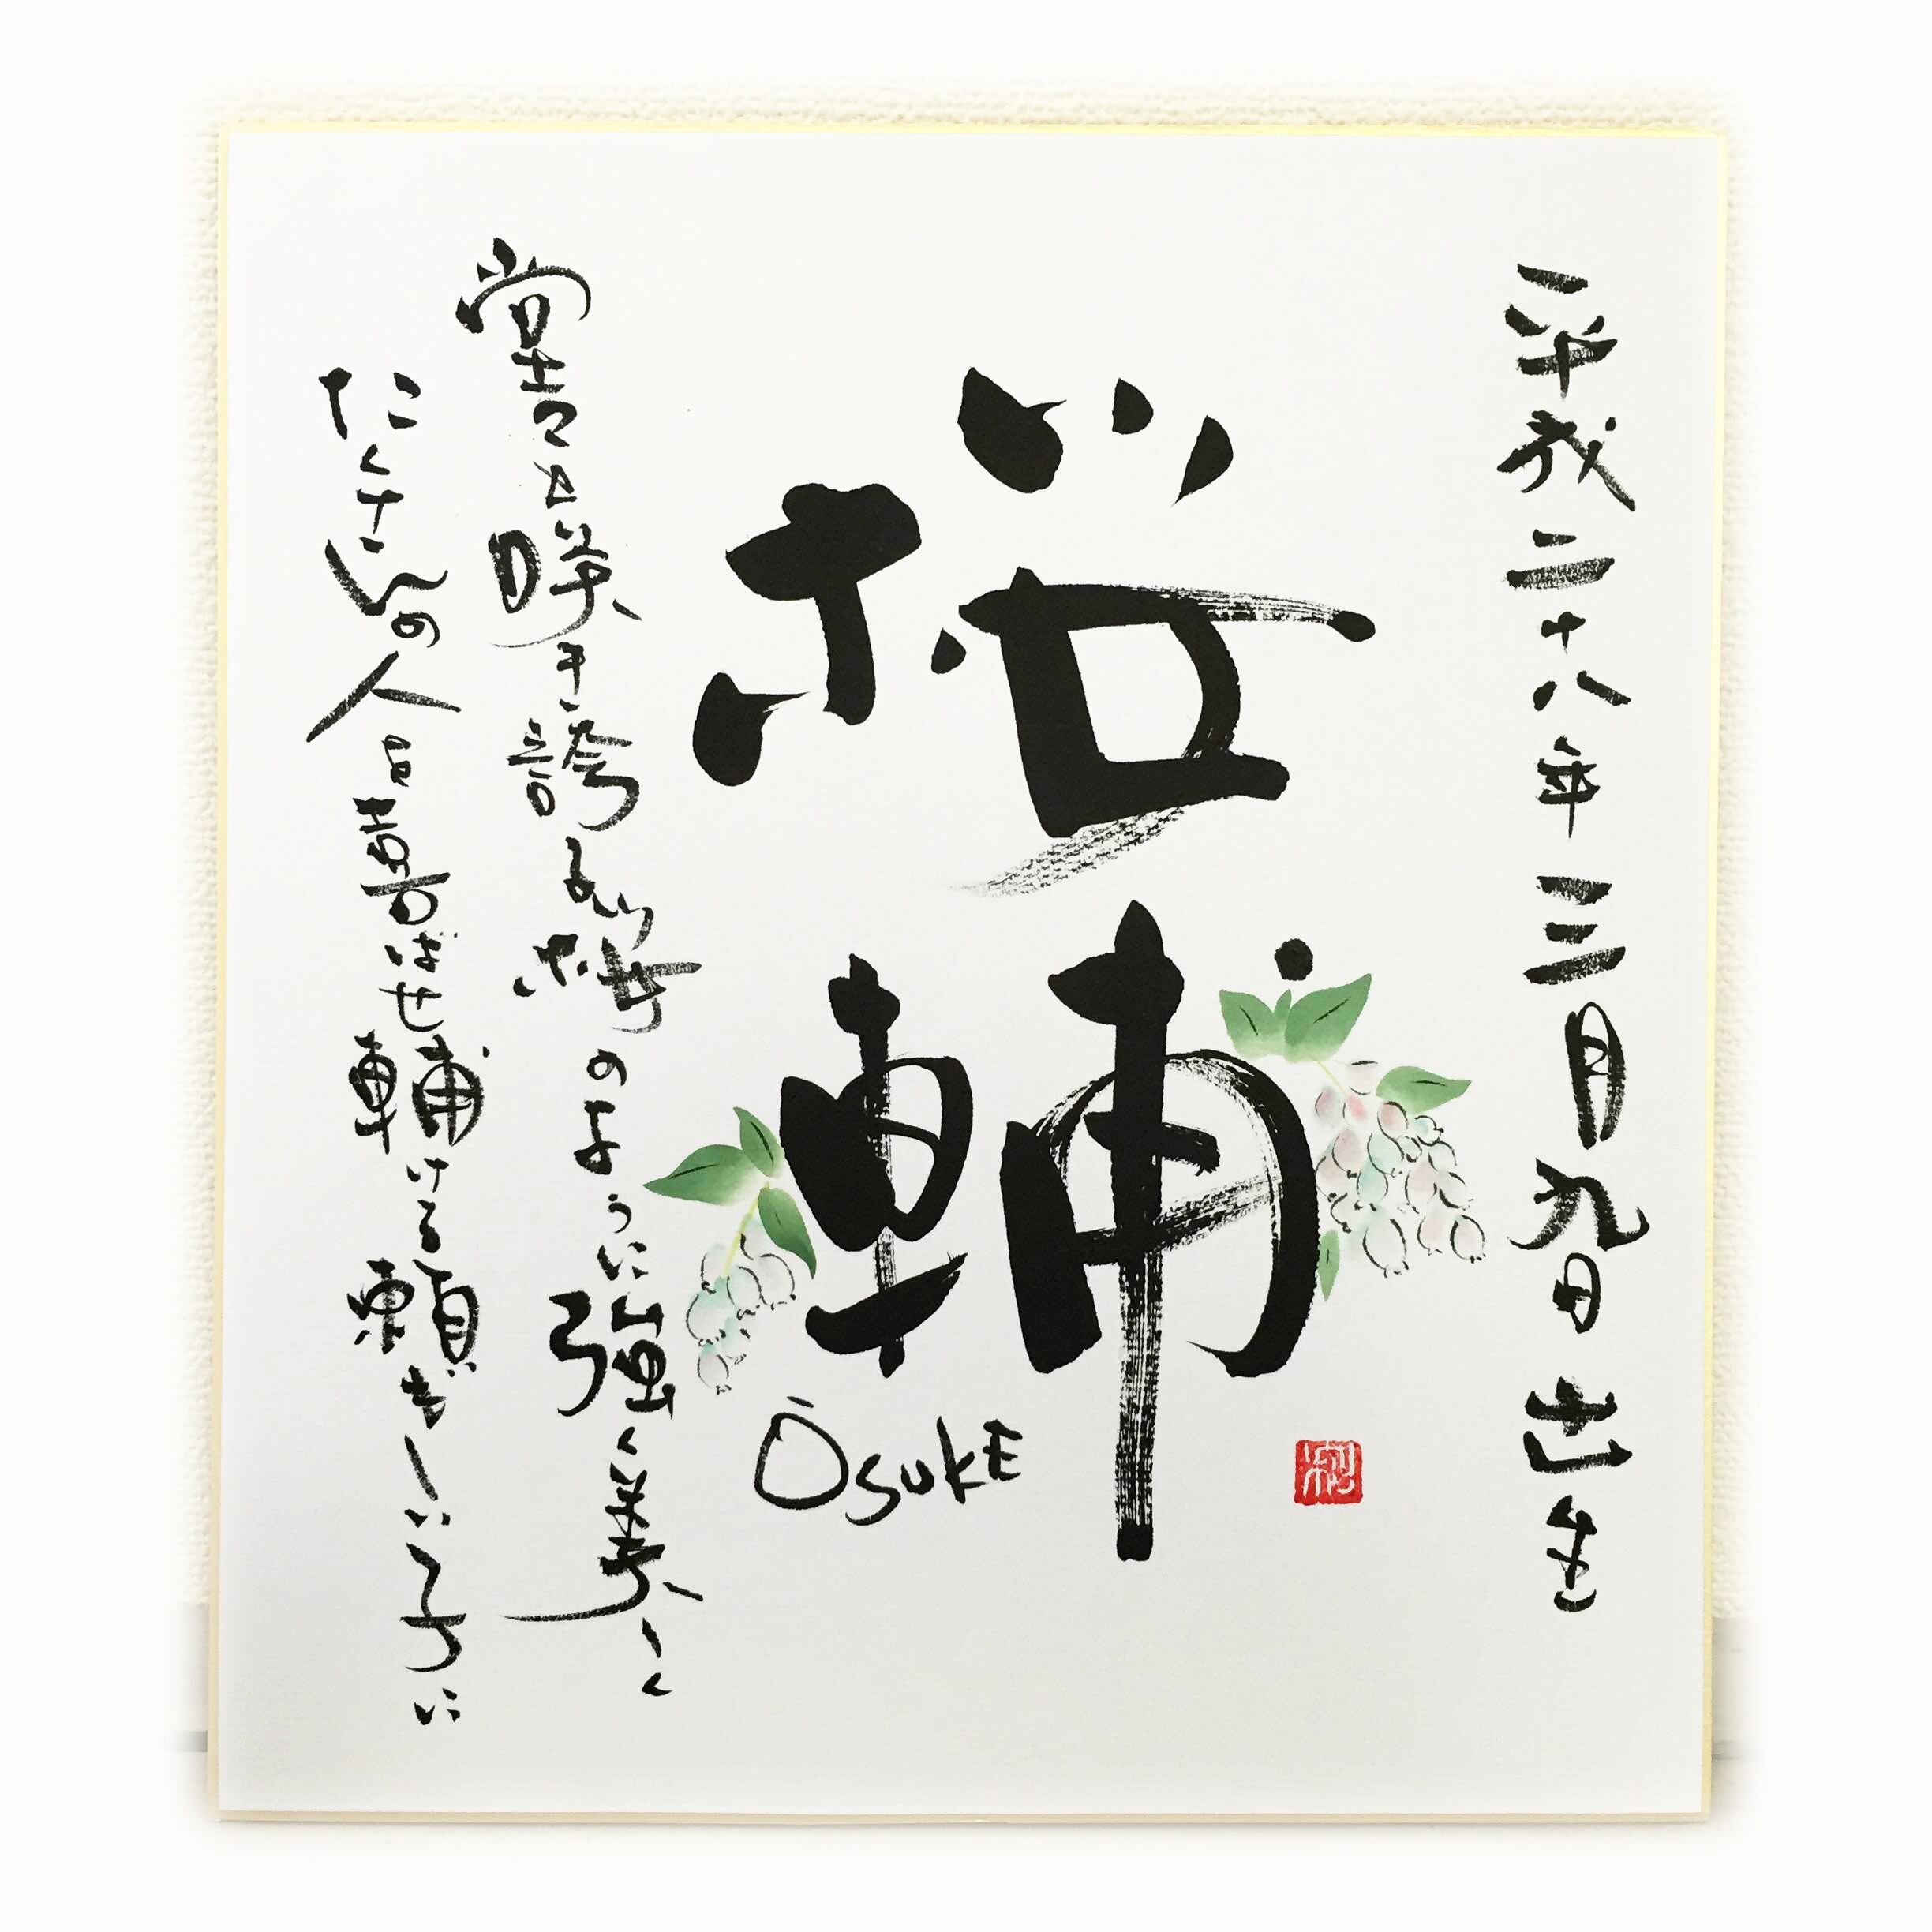 平成二十八年三月九日出生
桜輔
Ōsuke
堂々と咲き誇る桜のように強く美しく
たくさんの人を喜ばせ輔ける頼もしい子に